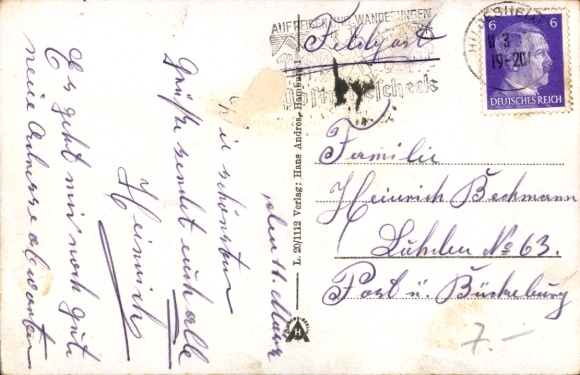 den 11. März
Die schönsten
Grüße sendet euch alle
Heinrich
Es geht mir noch gut
neue Adresse abwarten
L. 20/1112 Verlag: Hans Andres, Hamburg 1
AUF REISEN UND WANDERUNGEN
Feldpost
HILDESHEIM
11 3
19-20
6 6
DEUTSCHES REICH
Familie
Heinrich Beckmann
Lühden No 63.
Post ü. Bückeburg
7.-